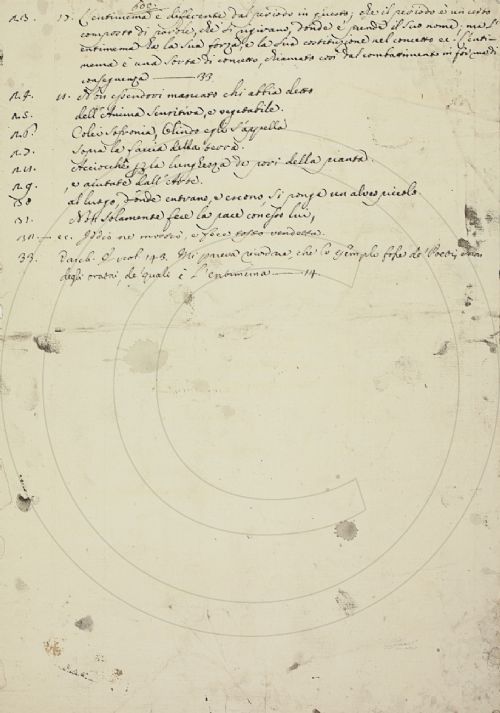 n.3. 17. L'entimema è differente dal periodo in questo; che il periodo è un certo
composto di parole, che si aggirano, donde è prende il suo nome, ma l'
entimema ha la sua forza, e la sua costituzione nel concetto et l'enti-
mema è una sorta di concetto, chiamato così dal combattimento in
conseguenza — 33
n.4. 11. Non essendovi mancato chi abbia detto
n.5. dell'Anima sensitiva, e vegetabile.
n.6. Colei Sofronia, Olindo egli s'appella
n.7. Sopra la faccia della terra.
Acciocchè la lunghezza de pori della pianta
n.9. , e aiutate dall'Arte.
30 al luogo, donde entrano, e escono si ponga un alveo piccolo
31. Non solamente fece la pace con esso lui,
Iddio ne mostrò, e fece vendetta.
33. che lo esemplo fosse de' Poeti,
degli oratori, de quali è l'Entimema — 14